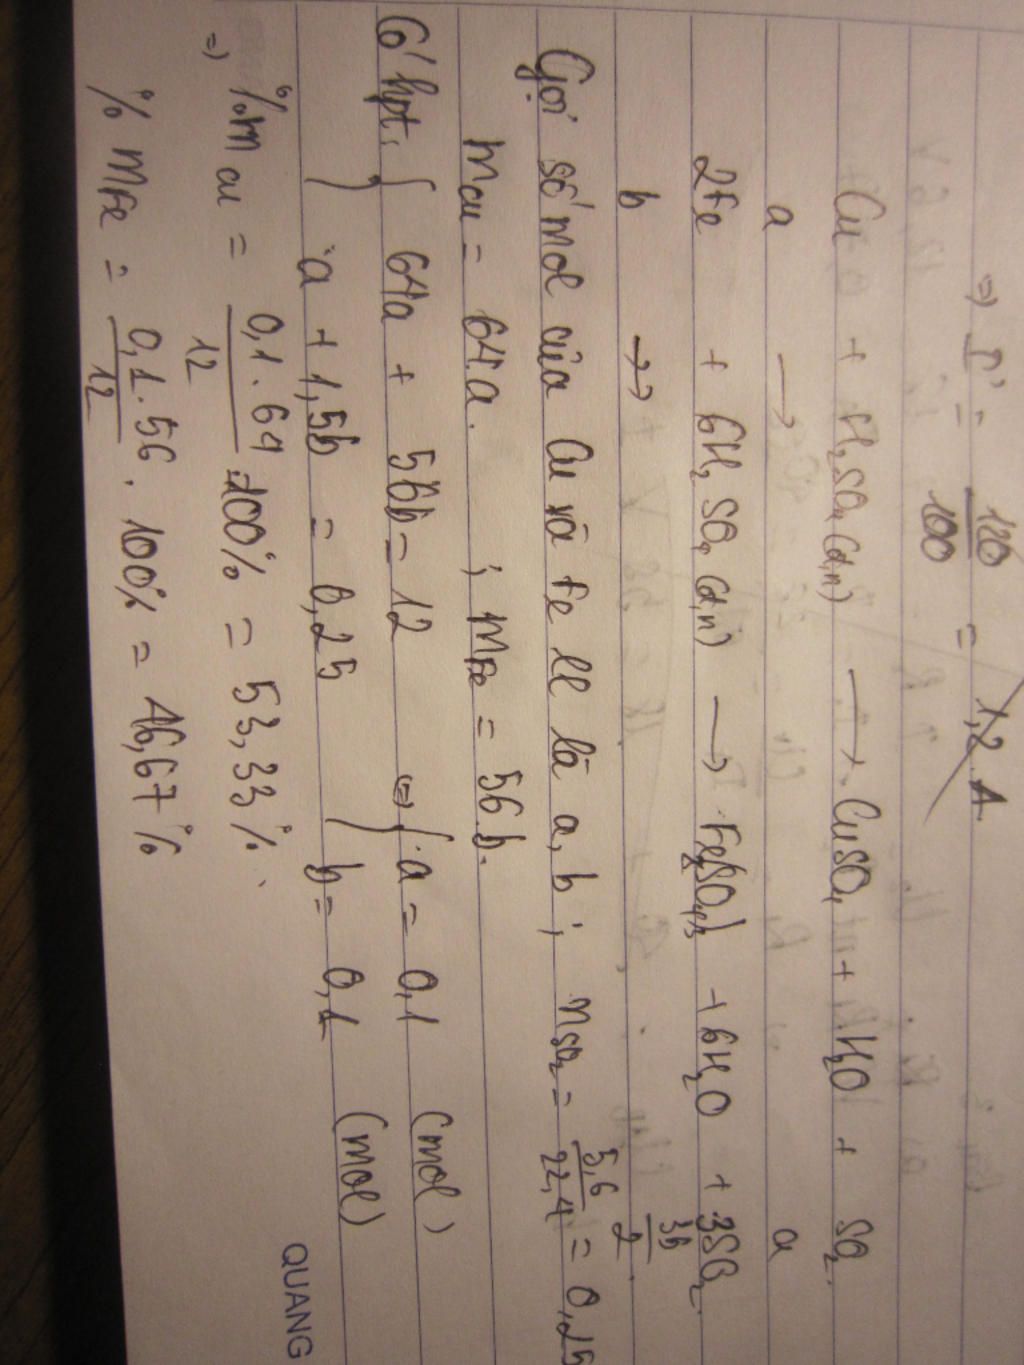 => = 120/100 = 1,2 A
Cu + H₂SO₄(đ,n) → CuSO₄ + H₂O + SO₂
a → a
2Fe + 6H₂SO₄(đ,n) → Fe₂(SO₄)₃ + 6H₂O + 3SO₂
b → 3b/2
Gọi số mol của Cu và Fe ll là a, b; nSO₂ = 5,6/22,4 = 0,25
mCu = 64.a. ; mFe = 56.b.
Có hpt: { 64a + 56b = 12 (=) { a = 0,1 (mol)
a + 1,5b = 0,25 b = 0,1 (mol)
=) %mCu = 0,1.64/12 .100% = 53,33%.
% mFe = 0,1.56/12 . 100% = 46,67%
QUANG